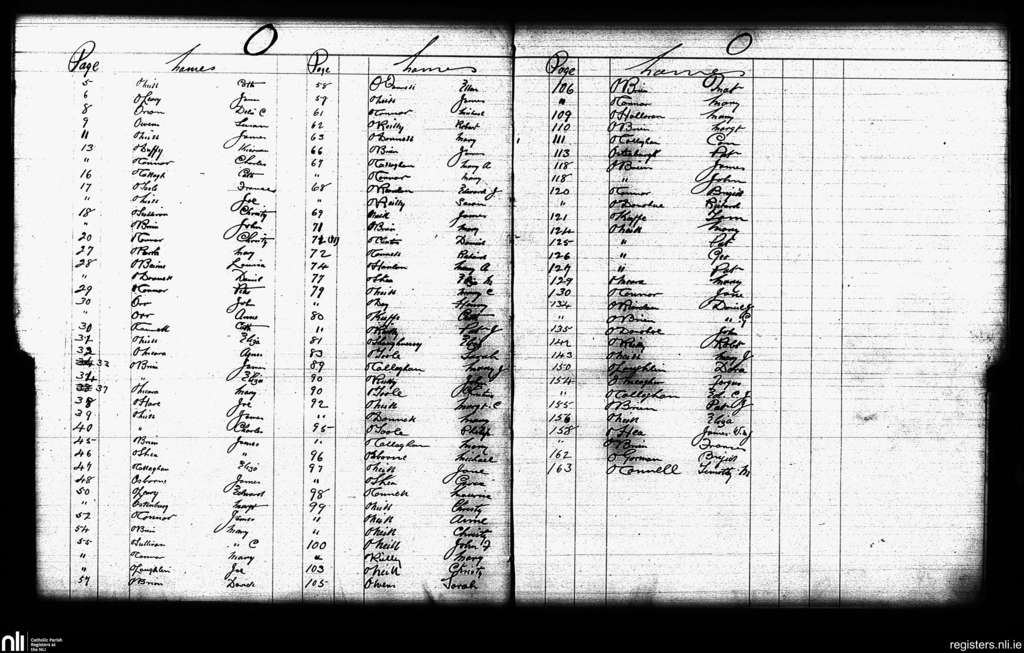 O
O
Page Names Page Names
Page Names
5 O'Neill Cath
6 O'Leary Jane
8 Oran Delia C
9 Owens Susan
11 O'Neill James
13 O'Duffy
" O'Connor Charles
16 O'Kellagh Cath
17 O'Toole Frances
" O'Neill Joe
18 O'Sullivan Christy
" O'Brien John
20 O'Connor Christy
27 O'Rorke Mary
28 O'Beirne Louisa
" O'Donnell Daniel
29 O'Connor Peter
30 Orr John
" Orr Anne
30 O'Connell Cath
31 O'Neill Eliza
32 O'Meara Agnes
33 O'Brien James
34 " Eliza
37 O'Meara Mary
38 O'Hare Joe
39 O'Neill James
40 " Charles
45 O'Brien James
46 O'Shea "
47 O'Callaghan Eliza
48 Osborne James
50 O'Leary Edward
" Ostenburg Margt
52 O'Connor James
54 O'Brien Mary
55 O'Sullivan " C
" O'Connor Mary
" O'Loughlin Joe
57 O'Brien David
58 O'Connell Ellen
59 O'Neill James
61 O'Connor Michael
62 O'Reilly Robert
63 O'Donnell Mary
66 O'Brien James
67 O'Callaghan Mary A
" O'Connor Mary
68 O'Riordan Edward J
" O'Reilly Susan
69 O'Neill James
71 O'Brien Mary
72 (11) O'Connor Daniel
72 O'Connell Richard
74 O'Hanlon Mary A
77 O'Shea M
79 O'Neill Mary C
" O'Dey Henry
80 O'Keeffe
" O'Reilly Pat J
81 O'Shaughnessy Eliz
83 O'Toole Sarah
89 O'Callaghan Mary J
90 O'Reilly John
90 O'Toole Christina
92 O'Neill Margt C
" O'Donnell Mary
95 O'Toole Philip
" O'Callaghan Mary
96 Osborne Michael
97 O'Neill Jane
" O'Shea
98 O'Connell
99 O'Neill Christy
" O'Neill Anne
" O'Neill Christy
100 O'Neill John J
" O'Reilly Mary
103 O'Neill Christy
105 Owens Sarah
106 O'Brien Pat
" O'Connor Mary
109 O'Halloran Mary
110 O'Brien Margt
111 O'Callaghan Con
113 Ostenburgh Pat
118 O'Brien James
118 " John
120 O'Connor Brigid
" O'Donohoe Richard
121 O'Keeffe Thos
124 O'Neill Mary
125 " Pat
126 " Geo
129 " Pat
129 O'Meara Mary
130 O'Connor Jane
134 O'Riordan Daniel J
" O'Brien " G
135 O'Donohoe John
142 O'Reilly Robt
143 O'Neill Mary J
150 O'Loughlin Dora
154 O'Meagher James
" O'Callaghan Ed. C. J
155 O'Brien Pat J
156 O'Neill Eliza
158 O'Shea James
" O'Brien Frances
162 O'Gorman Brigid
163 O'Connell Timothy M
nli
Catholic Parish
Registers at
the NLI
registers.nli.ie